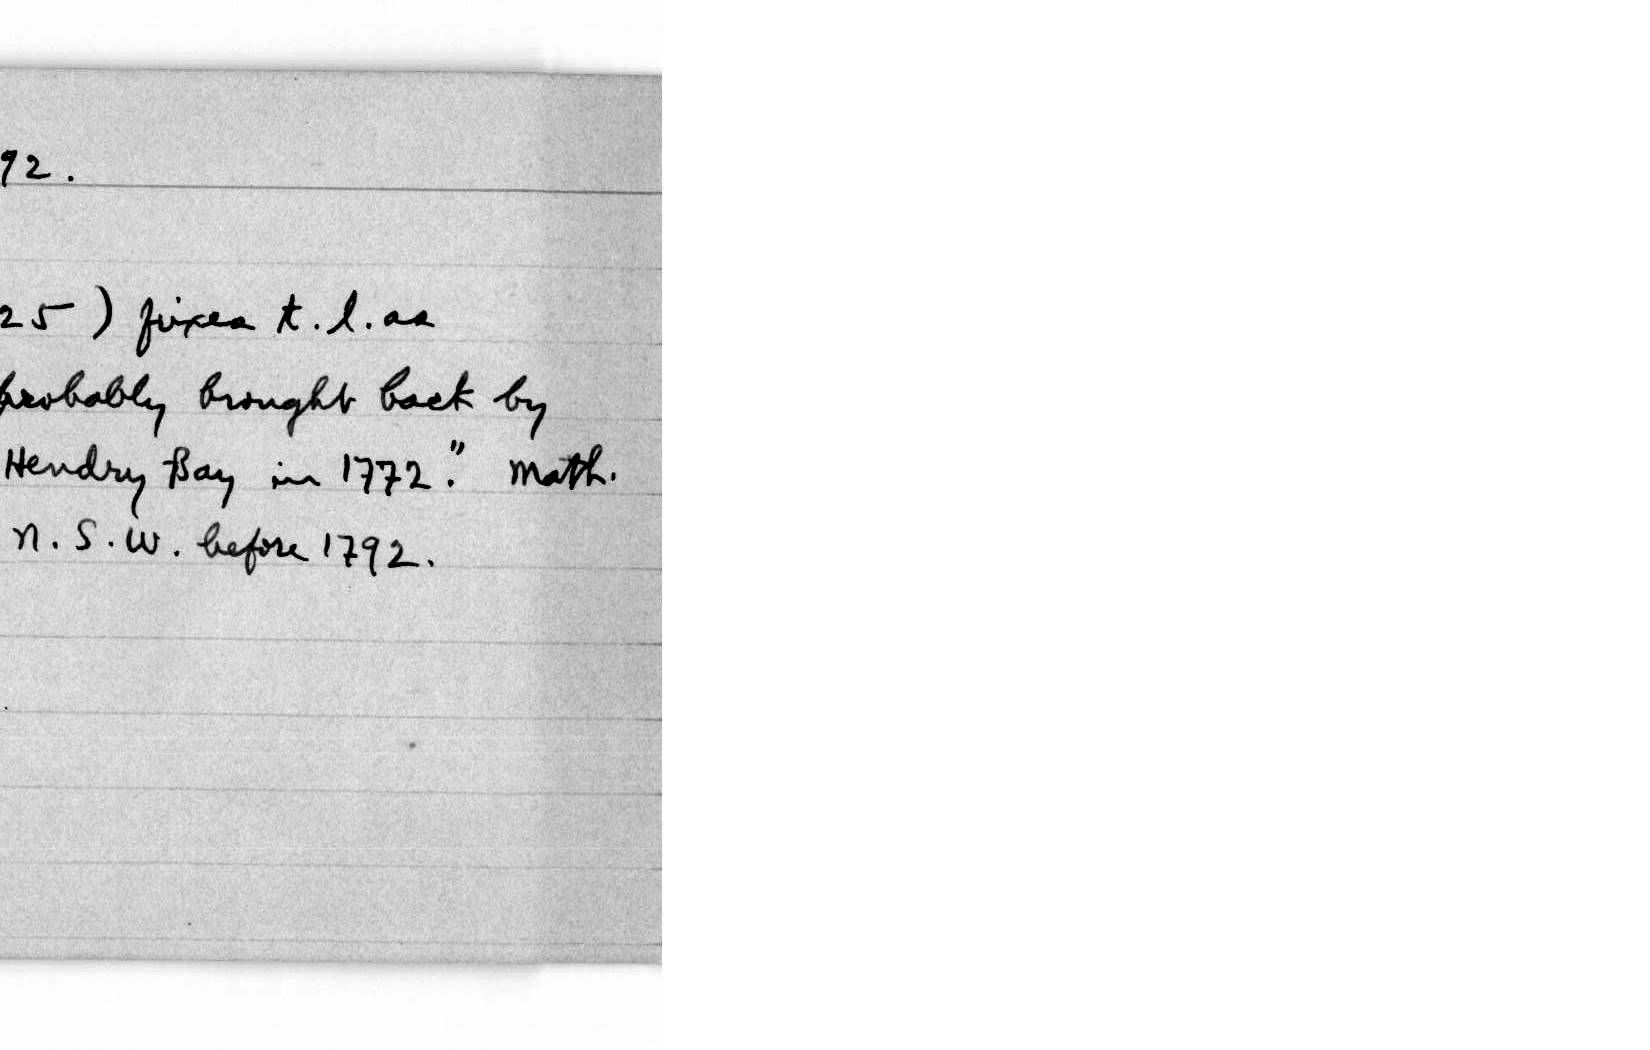 92.
25) fixes t.l. as
probably brought back by
Hendry Bay in 1772." Math.
N.S.W. before 1792.